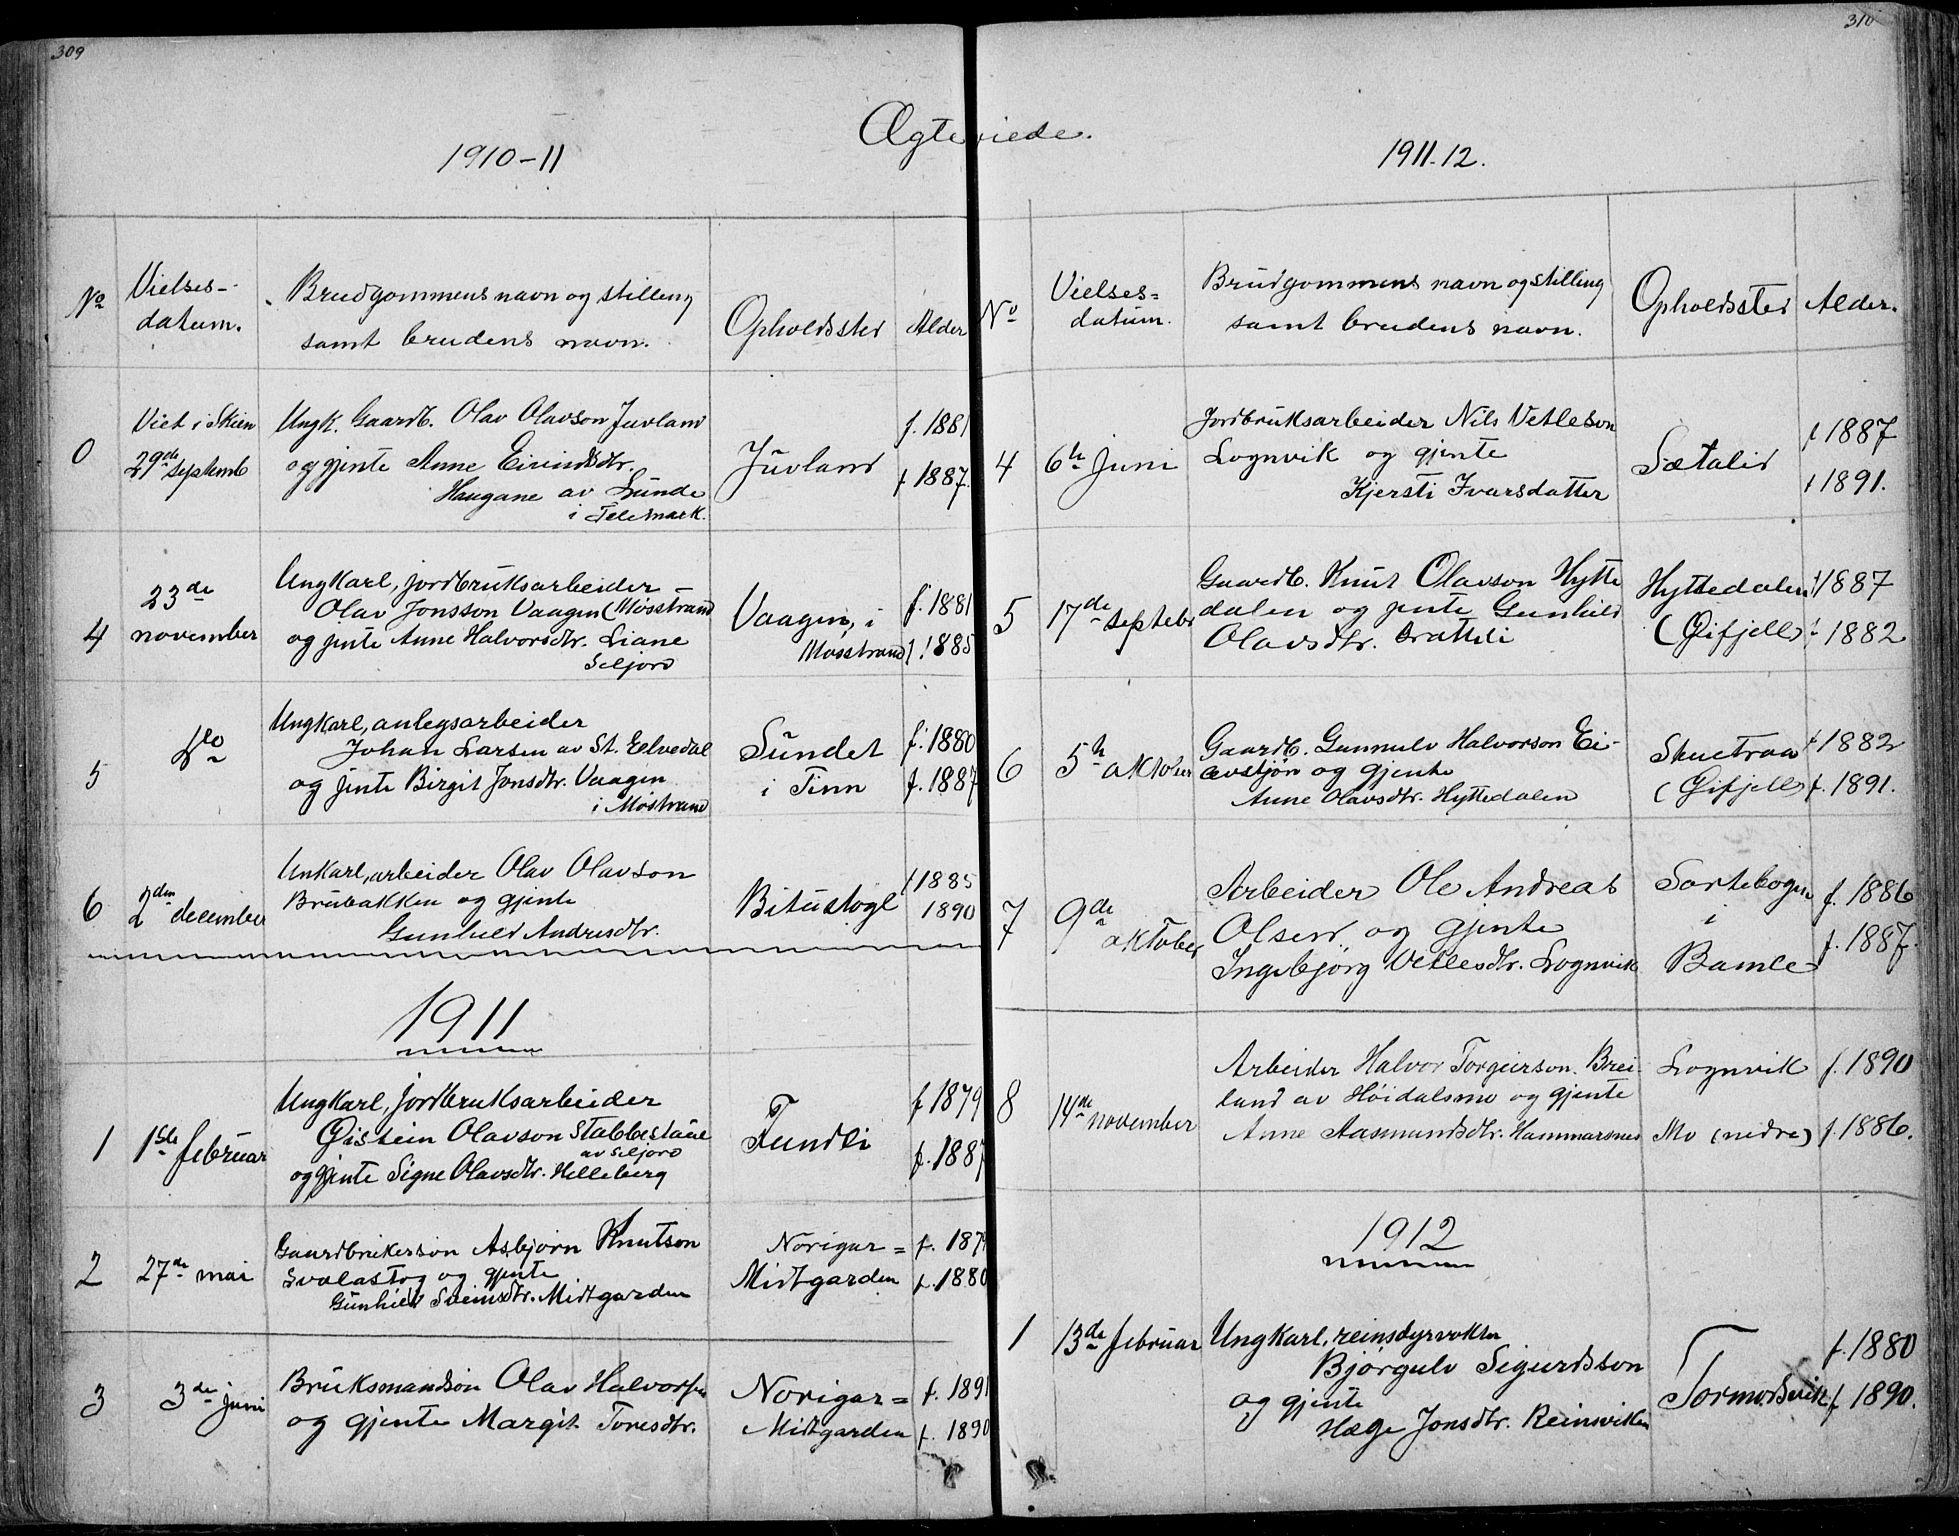 309
310
Ægteviede.
1910-11
No
Vielses-
datum.
Brudgommens navn og stilling
samt brudens navn.
Opholdssted
Alder
0
Viet i Skien
29de septemb
Ungk. Gaardb. Olav Olavson Juvland
og gjente Anne Eivindsdtr.
Haugane av Lunde
i Telemark.
Juvland
f. 1881
f 1887.
4
23de
november
Ungkarl, jordbruksarbeider
Olav Jonsson Vaagen (Møsstrand
og jente Anne Halvorsdtr. Liane
Seljord
Vaagen, i
Møsstrand
f. 1881
f. 1885
5
do
Ungkarl, anlegsarbeider
Johan Larsen av St. Elvedal
og jente Birgit Jonsdtr. Vaagen
i Møstrand
Sundet
i Tinn
f. 1880
f. 1887
6
2den december
Unkarl, arbeider Olav Olavson
Brubakken og gjente
Gunhild Andresdtr.
Bitustøgl
f 1885
1890
1911
1
1ste februar
Ungkarl, jordbruksarbeider
Øistein Olavson Stabbestaul
av Seljord
og gjente Signe Olavsdtr. Helleberg
Fundli
f 1879
f. 1887
2
27de mai
Gaardbrukersøn Asbjørn Knutson
Svalastog og gjente
Gunhild Sveinsdtr. Midtgarden
Norigar=
Midtgarden
f. 187
f. 1880
3
3de juni
Bruksmandsøn Olav Halvorsen
og gjente Margit Toresdtr.
Norigar=
Midtgarden
f. 1891
f. 1890
1911.12.
No
Vielses=
datum.
Brudgommens navn og stilling
samt brudens navn.
Opholdssted
Alder.
4
6te Juni
Jordbruksarbeider Nils Vetleson
Lognvik og gjente
Kjersti Ivarsdatter
Sætalid
f 1887
f 1891.
5
17de septebr
Gaardb. Knut Olavson Hytte
dalen og jente Gunhild
Olavsdtr. Brattli
Hyttedalen
(Øifjell)
f 1887
f 1882
6
5te oktober
Gaardb. Gunnulv Halvorson Ei-
avstjøn og gjente
Anne Olavsdtr. Hyttedalen
Skuetraa
(Øifjell)
f 1882
f. 1891.
7
9de
oktober
Arbeider Ole Andreas
Olsen og gjente
Ingebjørg Vetlesdtr. Lognvik
Sortebogen
i
Bamle
f. 1886
f. 1887.
8
14de november
Arbeider Halvor Torgeirson Brei-
land av Høidalsmo og gjente
Anne Aasmundsdtr. Hammarsnes
Lognvik
Mo (nedre)
f. 1890
f. 1886.
1912
1
13de februar
Ungkarl, reinsdyrvokter
Bjørgulv Sigurdsson
og gjente
Hæge Jonsdtr. Reinsviken
Tormodsvik
f. 1880
f 1890.